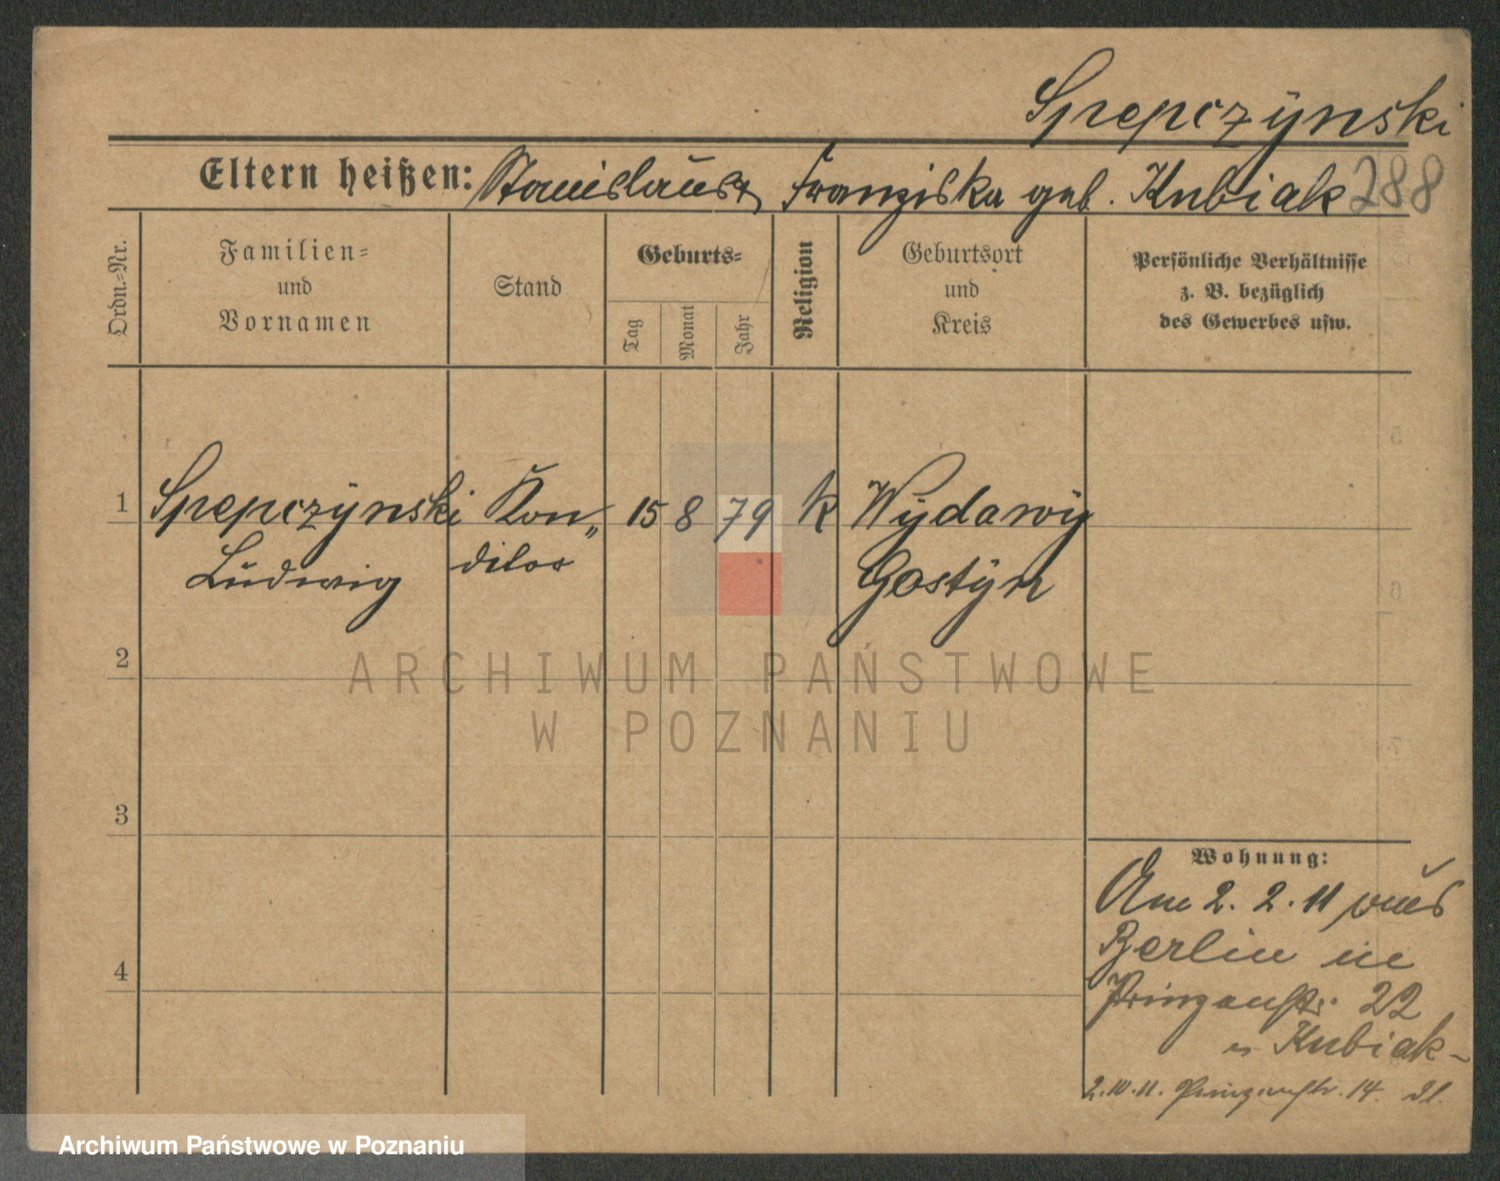 Spepczÿnski
Eltern heißen: Stanislaus Franziska geb. Kubiak 288
Ordn.-Nr.
Familien-
und
Vornamen
Stand
Geburts-
Tag
Monat
Jahr
Religion
Geburtsort
und
Kreis
Persönliche Verhältnisse
z. B. bezüglich
des Gewerbes usw.
1 Spepczÿnski Kon„ 15 8 79 k Wÿdawÿ
Ludwig ditor Gostÿn
2
3
4
Wohnung:
Am 2. 2. 11 aus
Berlin in
Prinzenstr. 22
Kubiak
2.10.11. Prinzenstr. 14.
ARCHIWUM PAŃSTWOWE
W POZNANIU
Archiwum Państwowe w Poznaniu